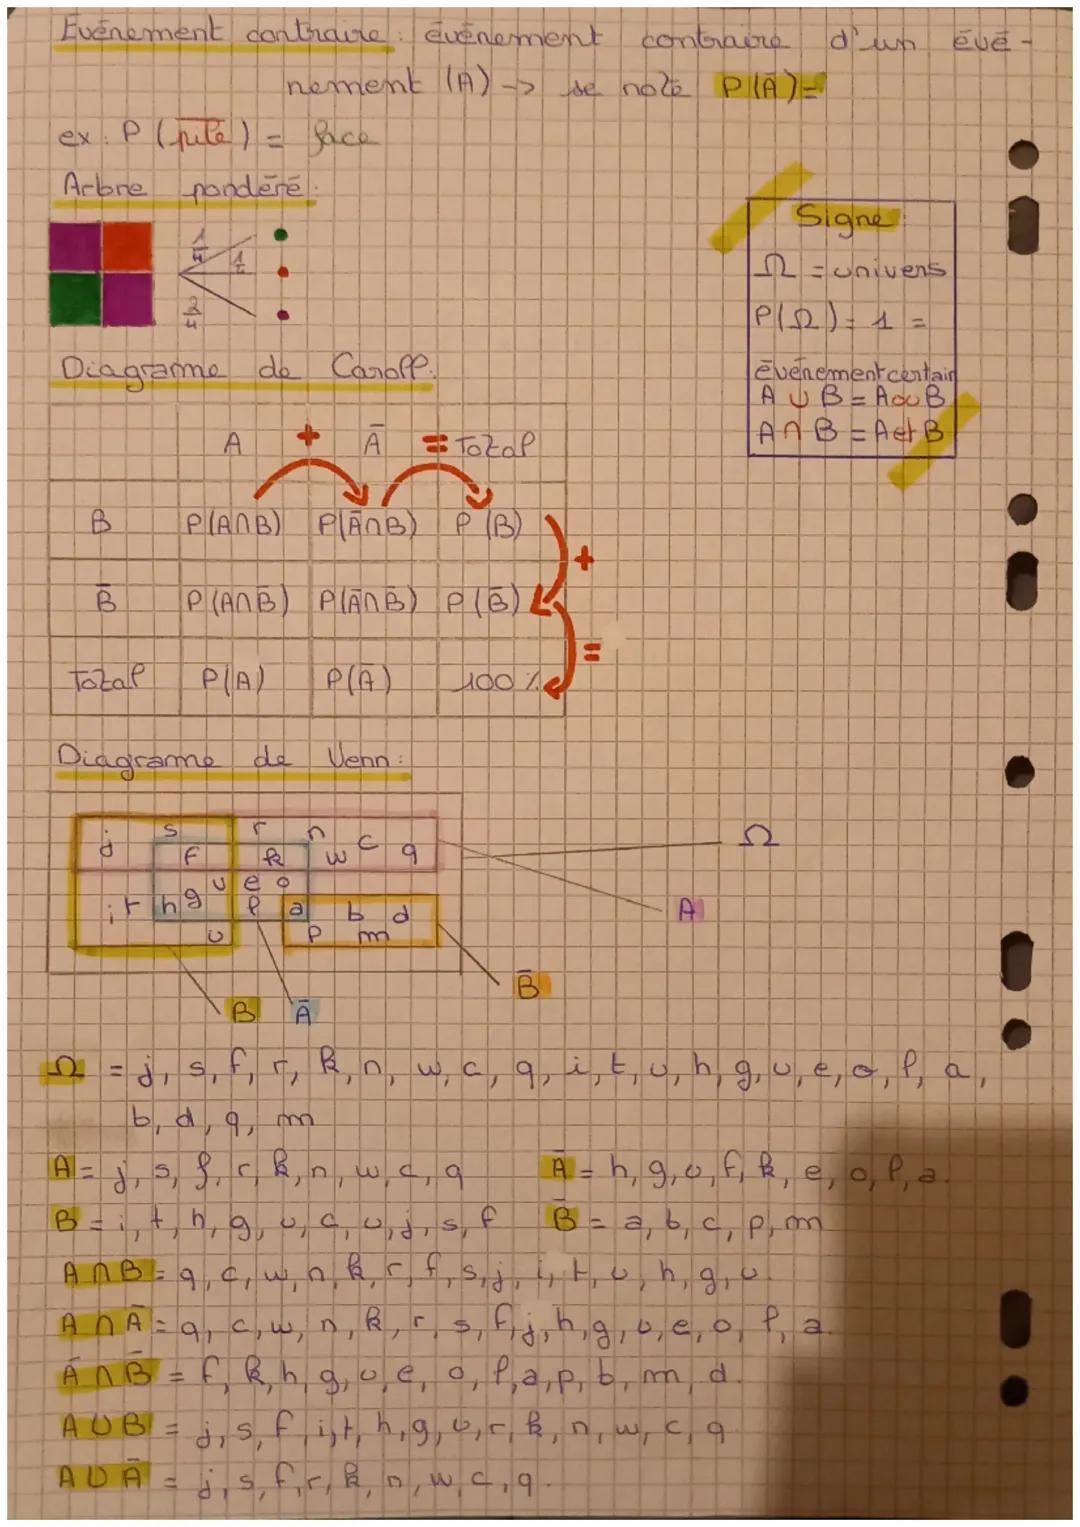 Événement contraire : événement contraire d'un évé-
nement (A) -> se note P(Ā)=
ex : P (pile) = face
Arbre pondéré :
1/4
1/4
2/4
Signe :
Ω = univers
P(Ω) = 1 =
événement certain
A ∪ B = A ou B
A ∩ B = A et B
Diagramme de Caroff :
A + Ā = Total
B P(A∩B) P(Ā∩B) P(B) +
B̄ P(A∩B̄) P(Ā∩B̄) P(B̄) =
Total P(A) P(Ā) 100 %
Diagramme de Venn :
j s r n c q
f k w
i t h g v e o
l a b d
u p m
Ω
A
B̄
B Ā
Ω = j, s, f, r, k, n, w, c, q, i, t, u, h, g, v, e, o, l, a,
b, d, q, m
A = j, s, f, r, k, n, w, c, q Ā = h, g, v, f, k, e, o, l, a.
B = i, t, h, g, v, c, u, j, s, f B̄ = a, b, c, p, m
A∩B = q, c, w, n, k, r, f, s, j, i, t, u, h, g, v.
A∩Ā = q, c, w, n, k, r, s, f, j, h, g, v, e, o, l, a.
Ā∩B̄ = f, k, h, g, v, e, o, l, a, p, b, m, d.
A∪B = j, s, f, i, t, h, g, v, r, k, n, w, c, q
A∪Ā = j, s, f, r, k, n, w, c, q.